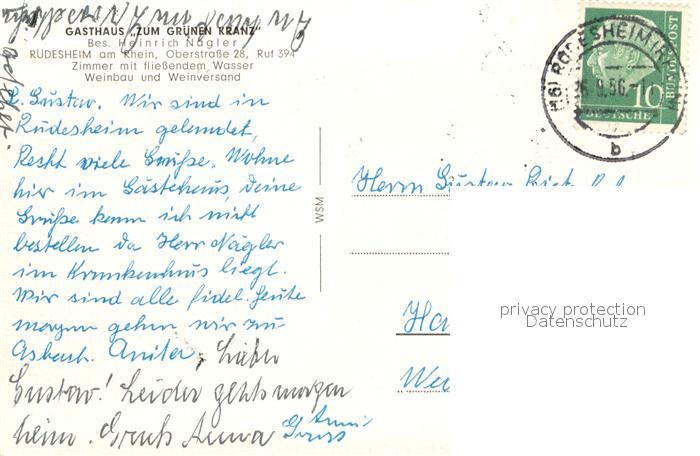 GASTHAUS „ZUM GRÜNEN KRANZ"
Bes. Heinrich Nägler
RÜDESHEIM am Rhein, Oberstraße 28, Ruf 394
Zimmer mit fließendem Wasser
Weinbau und Weinversand
L. Gustav. Wir sind in
Rüdesheim gelandet,
Recht viele Grüße. Wohne
hier im Gästehaus, deine
Grüße kann ich nicht
bestellen da Herr Nägler
im Krankenhaus liegt.
Wir sind alle fidel. Heute
morgen gehen wir zu
Asbach. Anita, Lieber
Gustav! Leider gehts morgen
heim. Gruß Anna
Gruss
WSM
RÜDESHEIM (RH
(16)
b
10
DEUTSCHE
BUNDESPOST
Herrn Gustav
Ha
We
privacy protection
Datenschutz